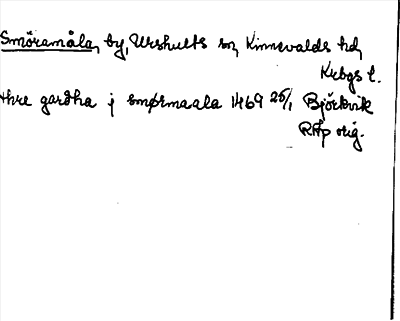 Smöramåla, by, Urshults sn, Kinnevalds hd,
Krbgs l.
thre gardha j smørmaala 1469 25/1 Björkvik
RAp orig.